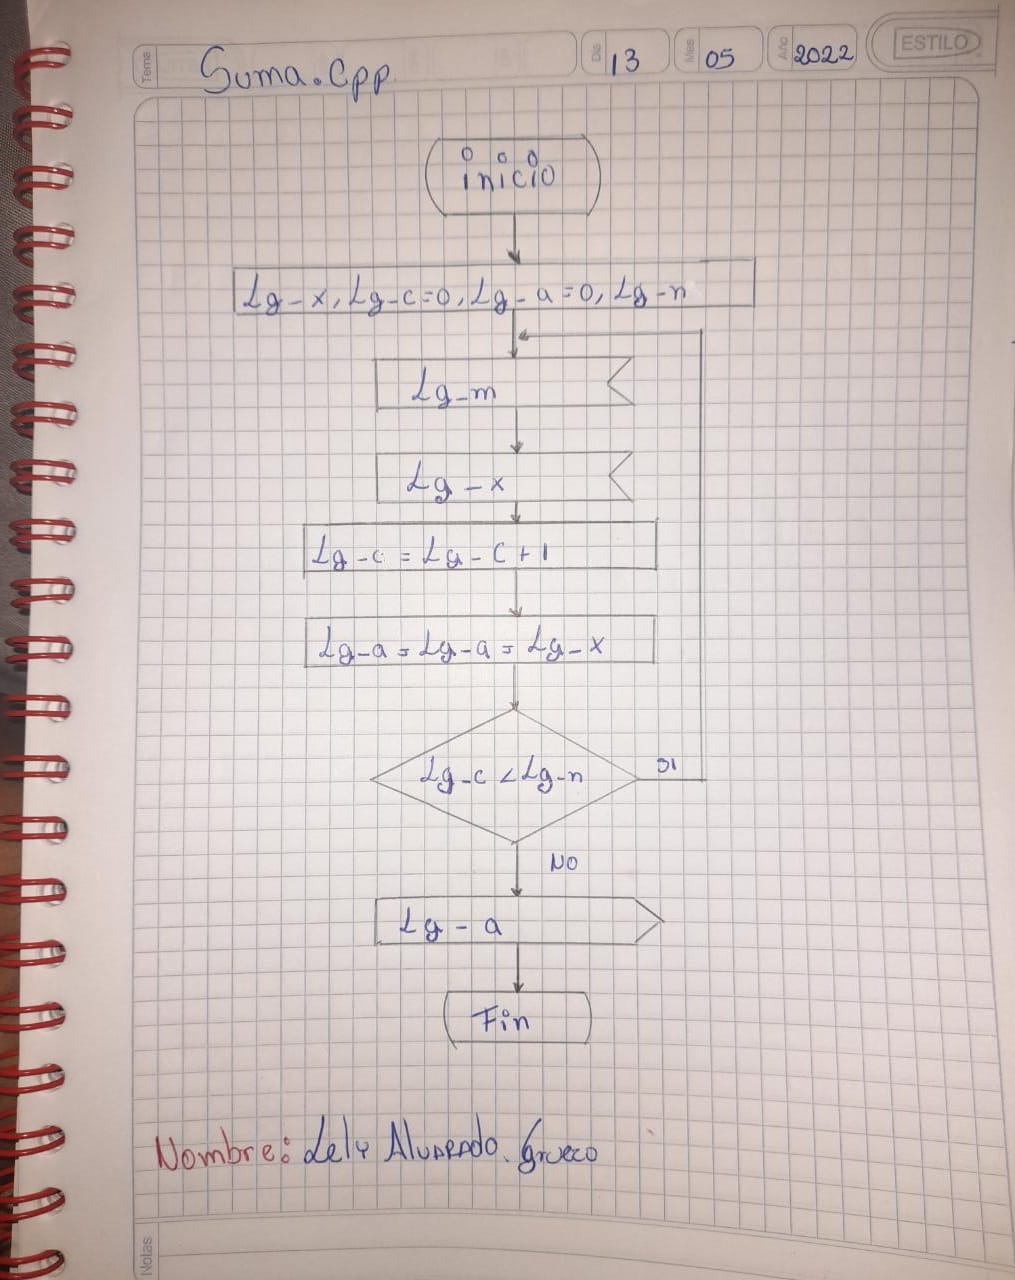 Tema
Suma.Cpp
Dia
13
Mes
05
Año
2022
ESTILO
inicio
Lg-x, Lg-c=0, Lg-a=0, Lg-n
Lg-m
Lg-x
Lg-c = Lg-c+1
Lg-a = Lg-a = Lg-x
Lg-c < Lg-n
SI
NO
Lg-a
Fin
Nombre: Lely Alvarado.
Notas